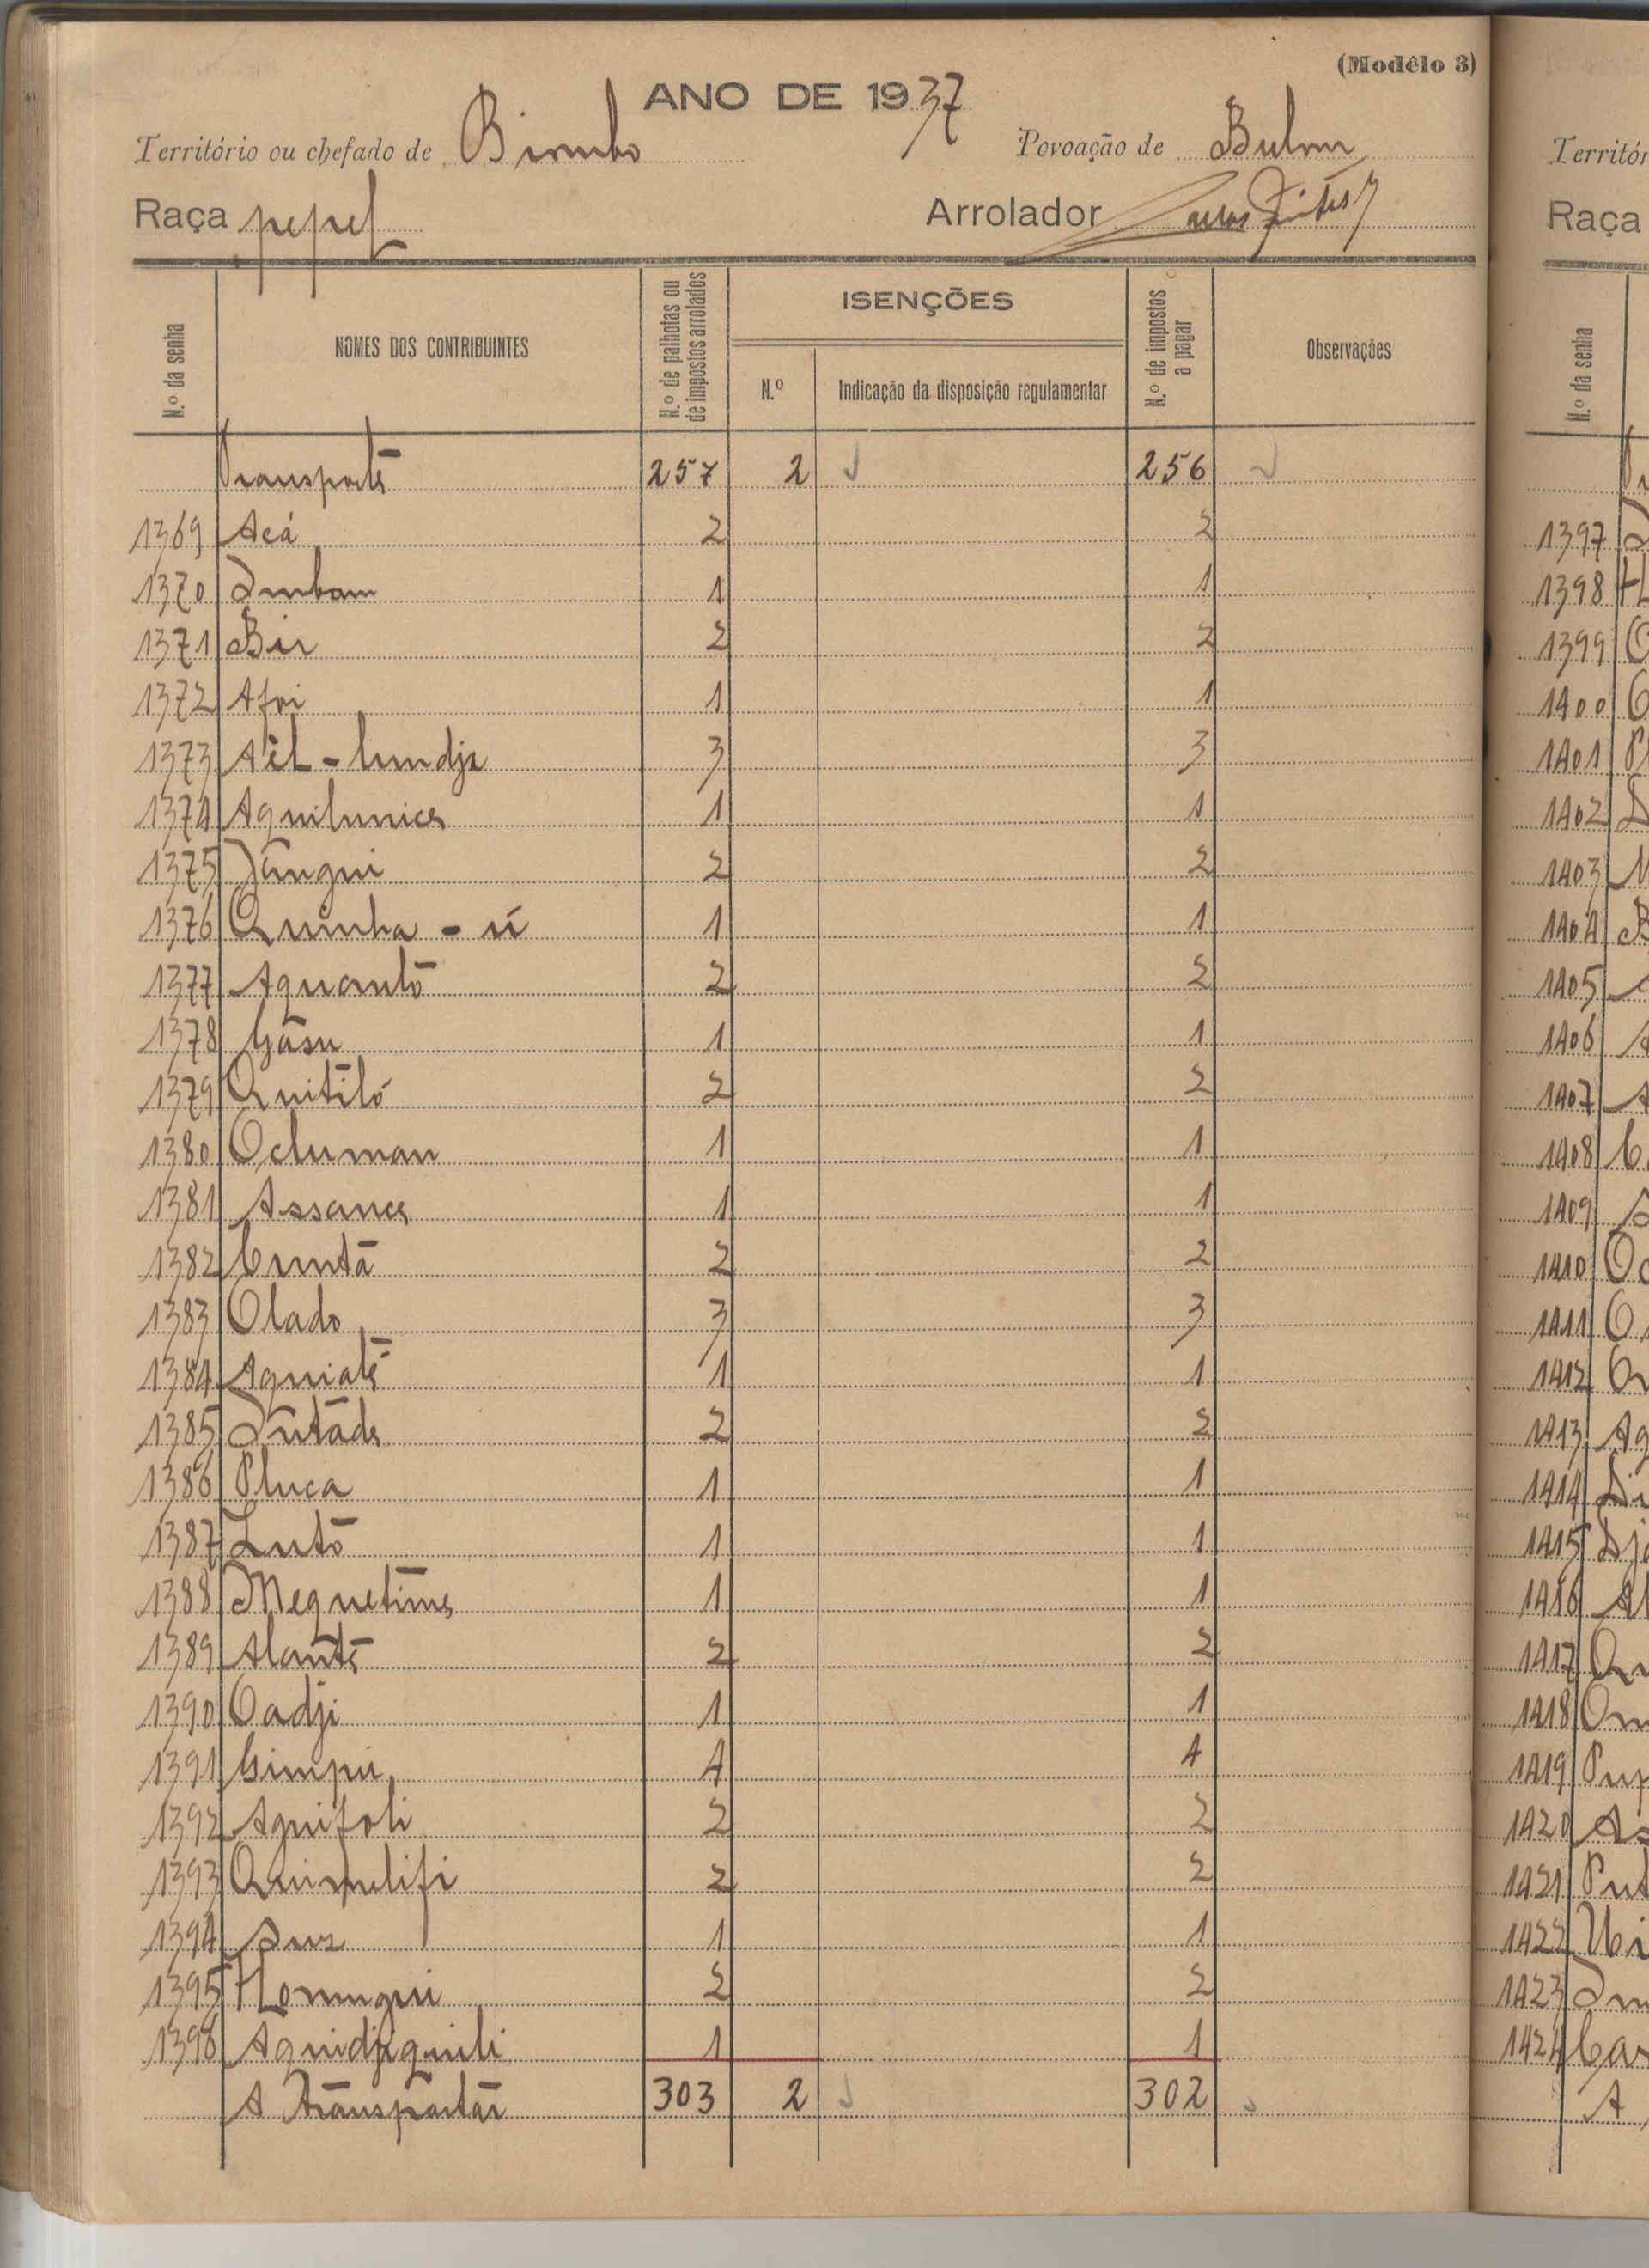 (Modêlo 3)
ANO DE 1937
Território ou chefado de Biombo Povoação de Bulom
Raça pepel Arrolador Carlos
N.º da senha NOMES DOS CONTRIBUINTES N.º de palhotas ou de impostos arrolados ISENÇÕES N.º Indicação da disposição regulamentar N.º de impostos a pagar Observações
Transporte 257 2 256
1369 Acá 2 2
1370 Imbam 1 1
1371 Bir 2 2
1372 Afoi 1 1
1373 1 3 3
1374 Aquilunico 1 1
1375 Jangui 2 2
1376 Quinha - si 1 1
1377 Aquantó 2 2
1378 Gasu 1 1
1379 Quitiló 2 2
1380 Ocluman 1 1
1381 Assance 1 1
1382 Cruntá 2 2
1383 Olado 3 3
1384 Aquiaté 1 1
1385 Intade 2 2
1386 Pluca 1 1
1387 Lutó 1 1
1388 Mequetime 1 1
1389 Alanté 2 2
1390 Oadji 1 1
1391 Gimpu 4 4
1392 Aquifoli 2 2
1393 Quimplifi 2 2
1394 1 1
1395 Homugui 2 2
1396 Aquidjiquili 1 1
A transportar 303 2 302
Territór
Raça
N.º da senha
1397
1398
1399
1400
1401
1402
1403
1404
1405
1406
1407
1408
1409
1410
1411
1412
1413
1414
1415
1416
1417
1418
1419
1420
1421
1422
1423
1424
A